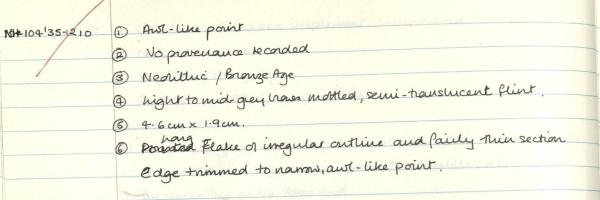 NH 104'35-1210 ① Awl-like point
② No provenance recorded
③ Neolithic / Bronze Age
④ Light to mid-grey brown mottled, semi-translucent flint.
⑤ 4.6cm x 1.9cm.
⑥ Long Flake of irregular outline and fairly thin section
Edge trimmed to narrow, awl-like point.